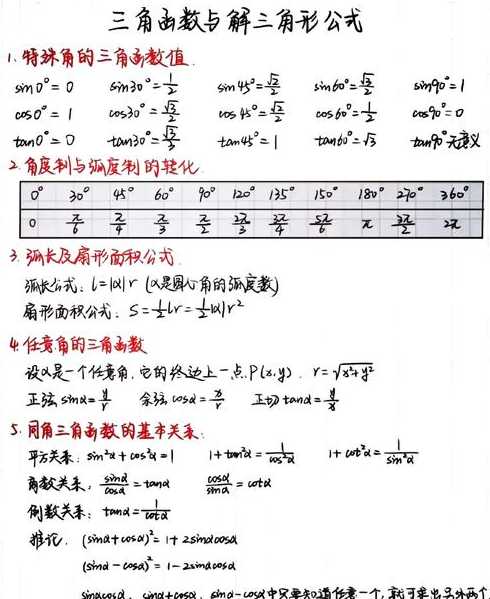 三角函数与解三角形公式
1. 特殊角的三角函数值.
sin0°=0 sin30°=1/2 sin45°=√2/2 sin60°=√3/2 sin90°=1
cos0°=1 cos30°=√3/2 cos45°=√2/2 cos60°=1/2 cos90°=0
tan0°=0 tan30°=√3/3 tan45°=1 tan60°=√3 tan90°无意义
2. 角度制与弧度制的转化.
0° 30° 45° 60° 90° 120° 135° 150° 180° 270° 360°
0 π/6 π/4 π/3 π/2 2π/3 3π/4 5π/6 π 3π/2 2π
3. 弧长及扇形面积公式.
弧长公式: l=|α|r (α是圆心角的弧度数)
扇形面积公式: S=1/2lr=1/2|α|r²
4. 任意角的三角函数
设α是一个任意角,它的终边上一点P(x,y). r=√x²+y²
正弦sinα=y/r 余弦cosα=x/r 正切tanα=y/x
5. 同角三角函数的基本关系:
平方关系: sin²α+cos²α=1 1+tan²α=1/cos²α 1+cot²α=1/sin²α
商数关系: sinα/cosα=tanα cosα/sinα=cotα
倒数关系: tanα=1/cotα
推论. (sinα+cosα)²=1+2sinαcosα
(sinα-cosα)²=1-2sinαcosα
sinαcosα, sinα+cosα, sinα-cosα中只要知道任意一个,就可求出另外两个